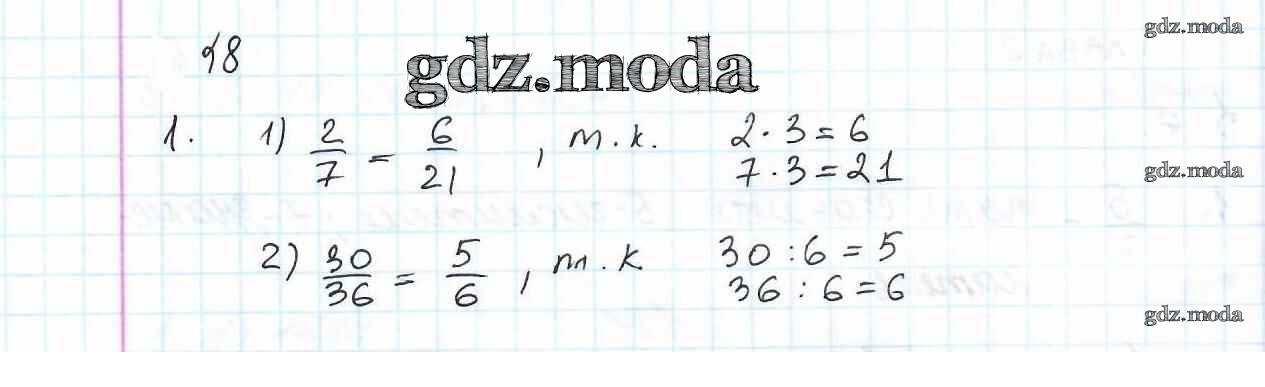 gdz.moda
§8
gdz.moda
1. 1) 2/7 = 6/21, т.к. 2·3=6
7·3=21
gdz.moda
2) 30/36 = 5/6, т.к 30:6=5
36:6=6
gdz.moda